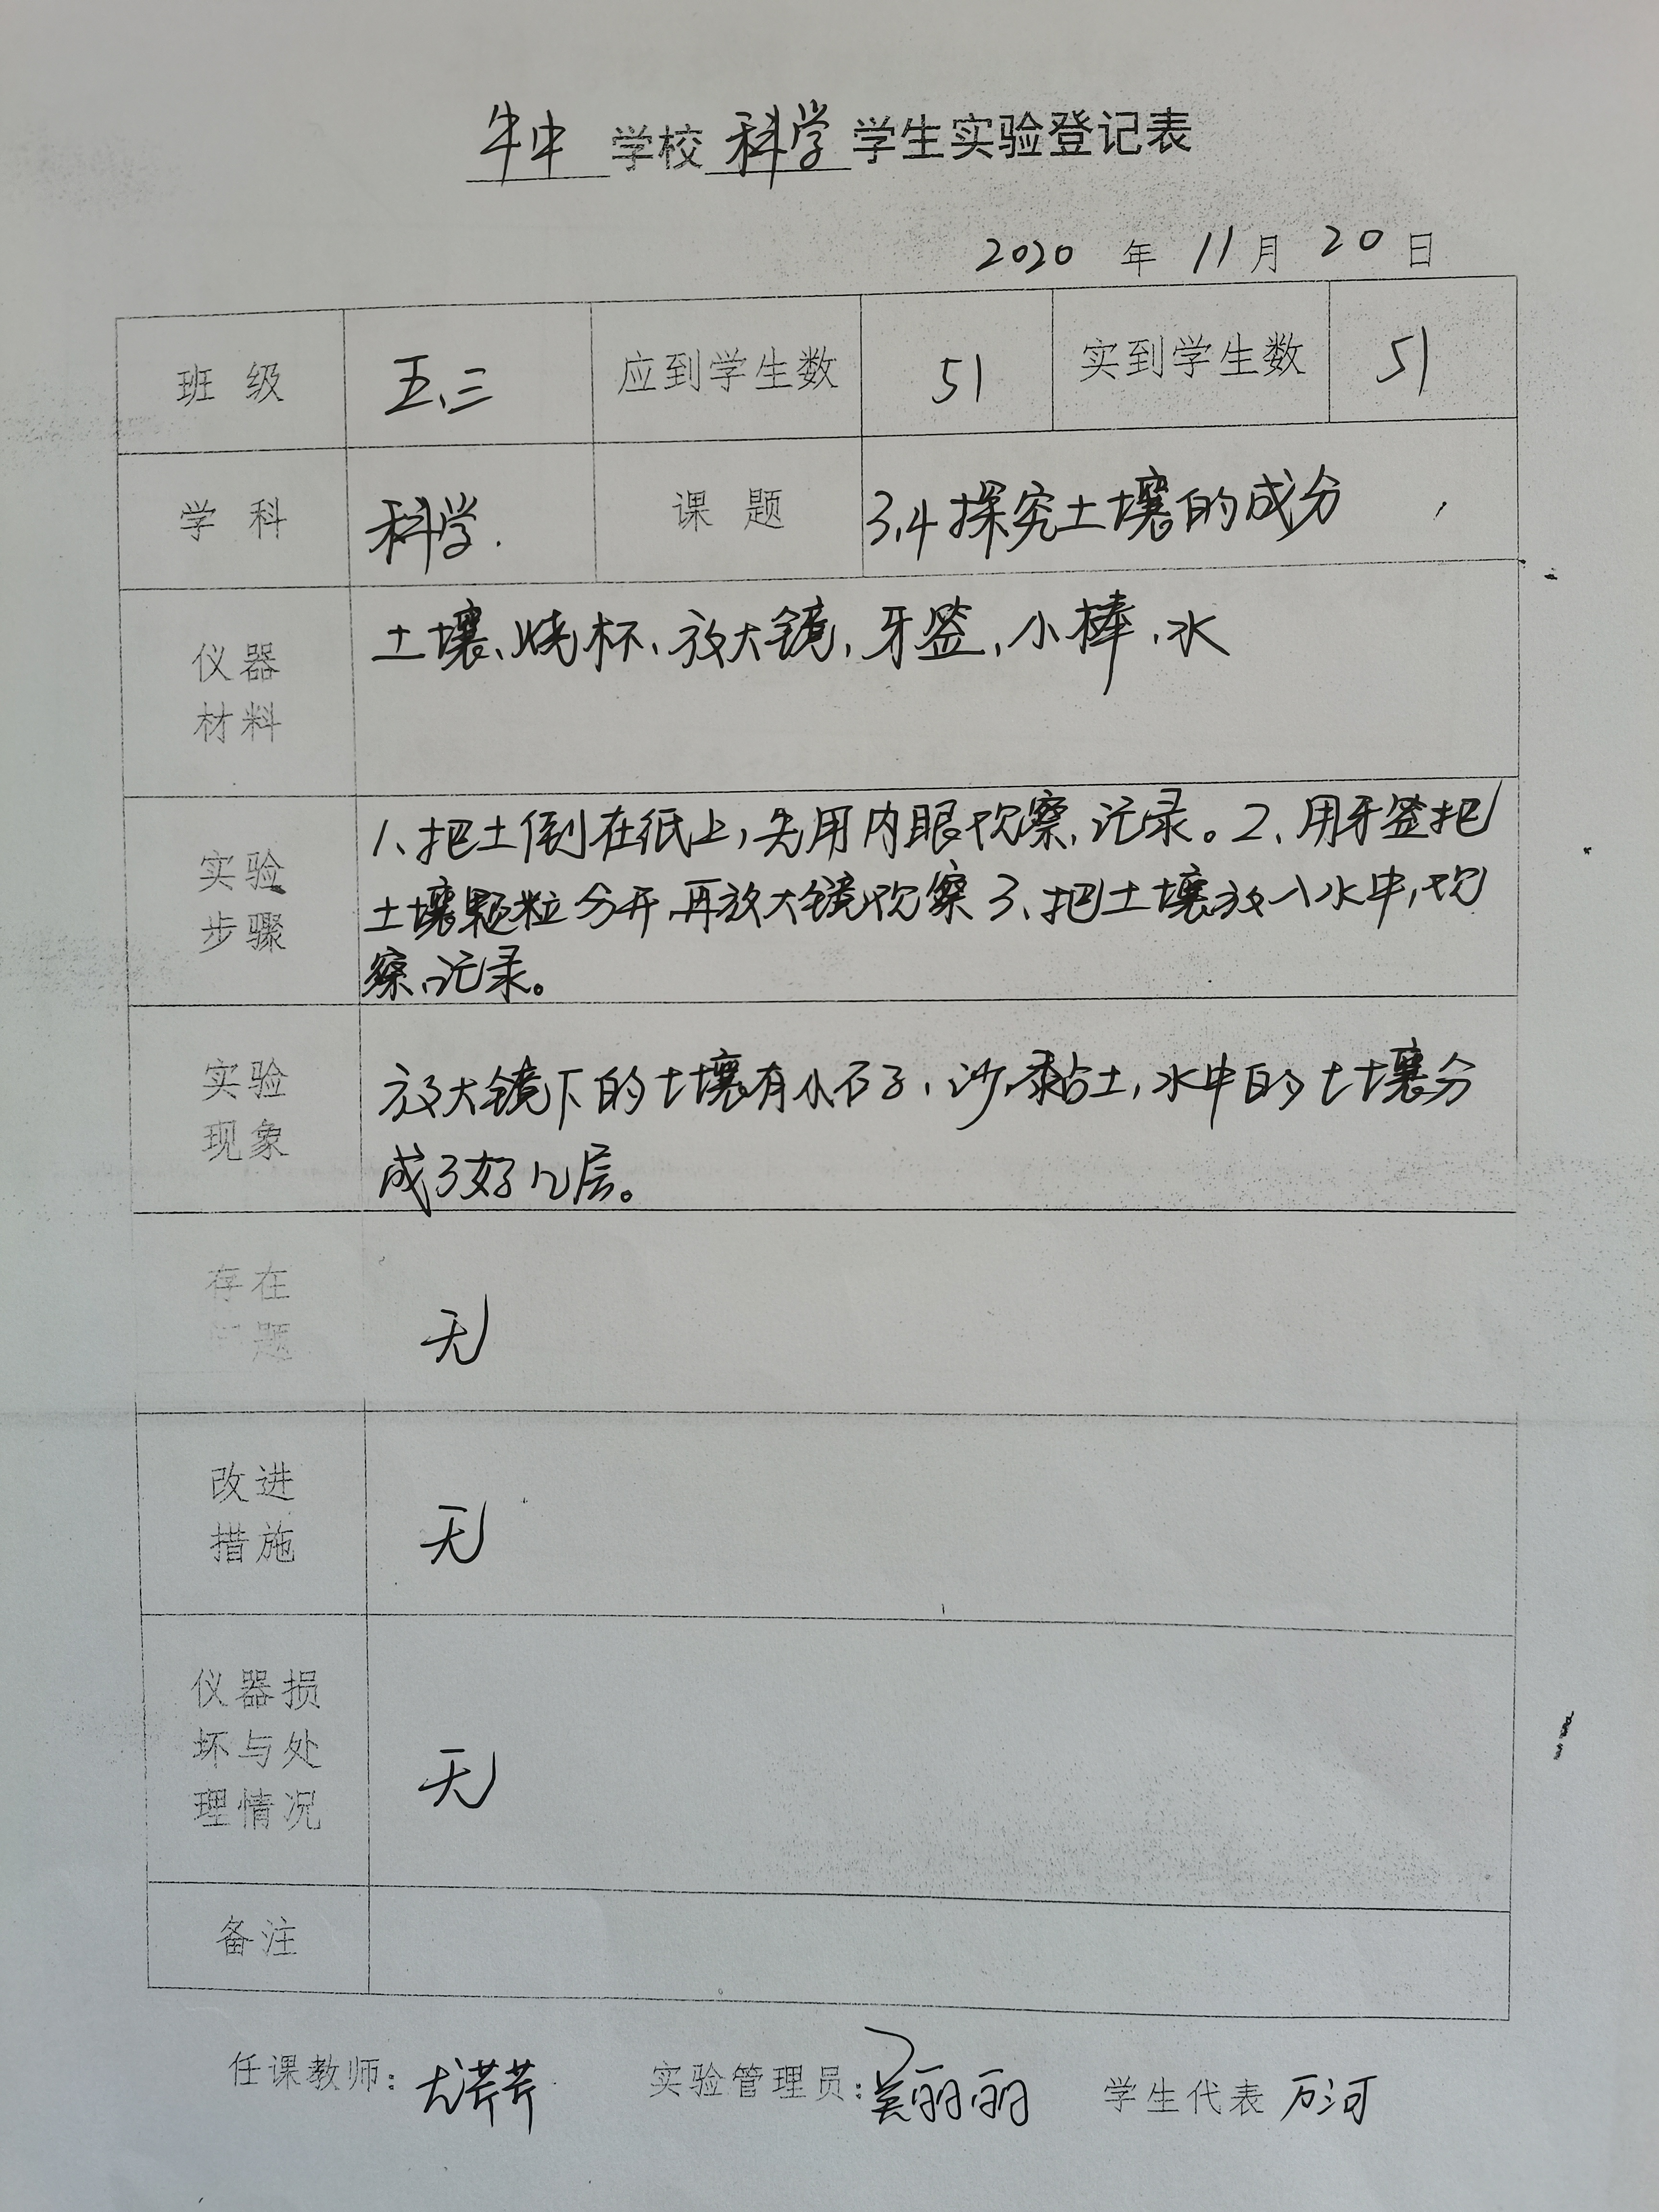 牛中 学校 科学 学生实验登记表
2020 年 11月 20 日
班 级 五、三 应到学生数 51 实到学生数 51
学 科 科学. 课 题 3.4 探究土壤的成分
仪器
材料
土壤、烧杯、放大镜,牙签,小棒,水
实验
步骤
1、把土倒在纸上,先用肉眼观察,记录。2、用牙签把
土壤颗粒分开,再放大镜观察 3、把土壤放入水中,观
察、记录。
实验
现象
放大镜下的土壤有小石子,沙,黏土,水中的土壤分
成了好几层。
存在
问题
无
改进
措施
无
仪器损
坏与处
理情况
无
备注
任课教师: 尤芹芹 实验管理员: 吴丽丽 学生代表 万河